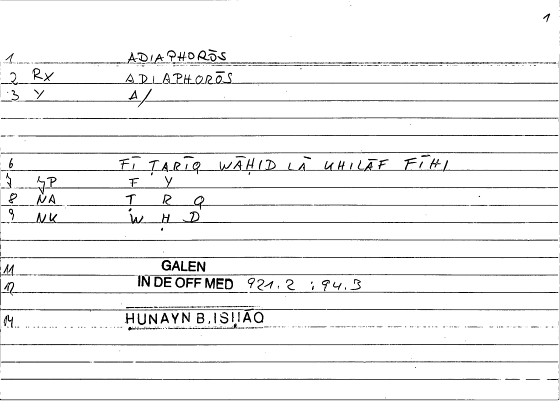 1
1 ADIAPHORŌS
2 RX ADIAPHORŌS
3 Y A/
6 FĪ ṬARĪQ WĀḤID LĀ UHILĀF FĪHI
7 JP F Y
8 NA Ṭ R Q
9 NK W Ḥ D
11 GALEN
12 IN DE OFF MED 921.2 : 94.3
14 ḤUNAYN B.ISḤĀQ